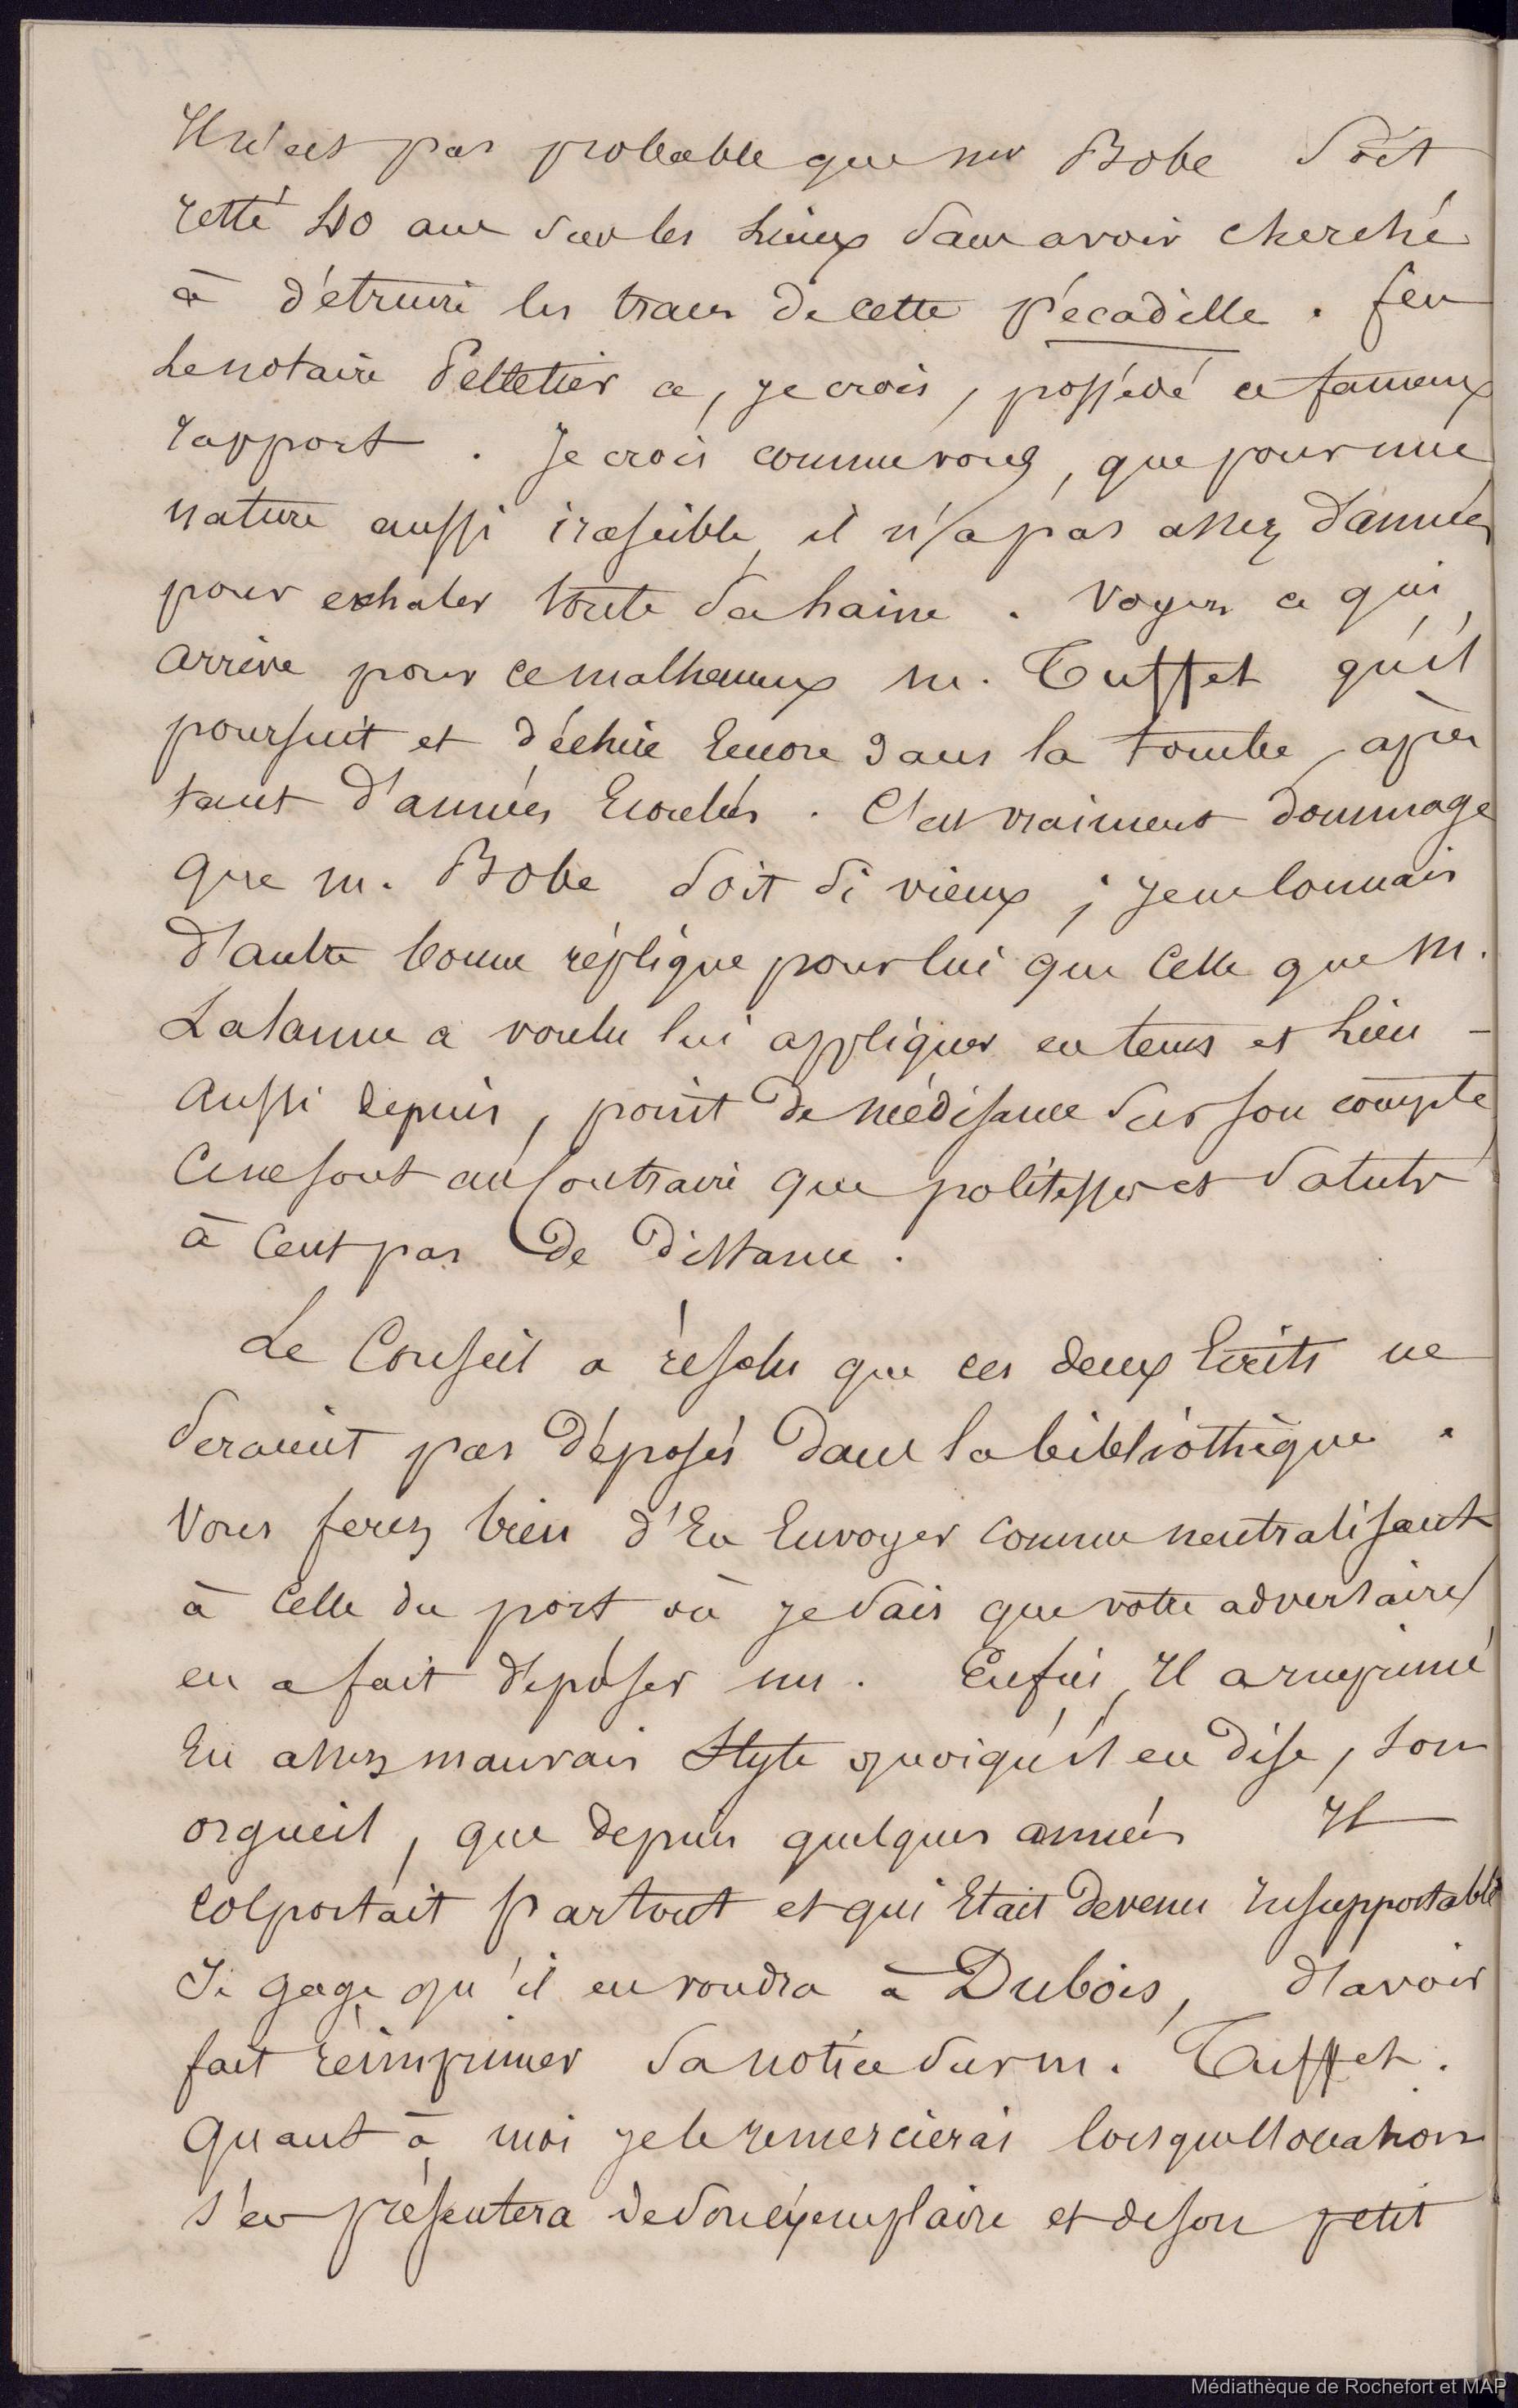 Il n'est pas probable que mr Bobe soit
resté 40 ans sur les Lieux sans avoir cherché
à détruire les traces de cette pécadille. feu
Le notaire Pelletier a, je crois, possédé ce fameux
rapport. Je crois comme vous, que pour une
nature aussi irascible, il n'a pas assez d'années
pour exhaler toute sa haine. Voyez ce qui
arrive pour ce malheureux m. Tuffet qu'il
poursuit et déchire Encore dans la tombe, après
tant d'années Ecoulées. C'est vraiment dommage
que m. Bobe soit si vieux ; je ne connais
d'autre bonne réplique pour lui que celle que M.
Lalanne a voulu lui appliquer en tems et Lieu -
aussi depuis, point de médisance sur son compte
ce ne sont au Contraire que politesses et saluts
à Cent pas de distance.
Le Conseil a résolu que ces deux Ecrits ne
seraient pas déposés dans la bibliothèque.
Vous ferez bien d'En Envoyer comme neutralisant
à Celle du port où je sais que votre adversaire
en a fait déposer un. Enfin, Il a imprimé
En assez mauvais Style quoiqu'il en dise, son
orgueil, que depuis quelques années Il
colportait partout et qui Etait devenu Insupportable
Je gage qu'il en voudra à Dubois, d'avoir
fait réimprimer sa notice sur m. Tuffet.
Quant à moi je le remercierai lorsque l'occasion
s'en présentera de son éxemplaire et de son petit
Médiathèque de Rochefort et MAP